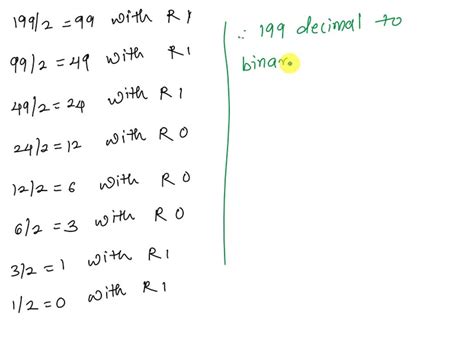 199/2 = 99 with R 1
99/2 = 49 with R 1
49/2 = 24 with R 1
24/2 = 12 with R 0
12/2 = 6 with R 0
6/2 = 3 with R 0
3/2 = 1 with R 1
1/2 = 0 with R 1
∴ 199 decimal to
binar